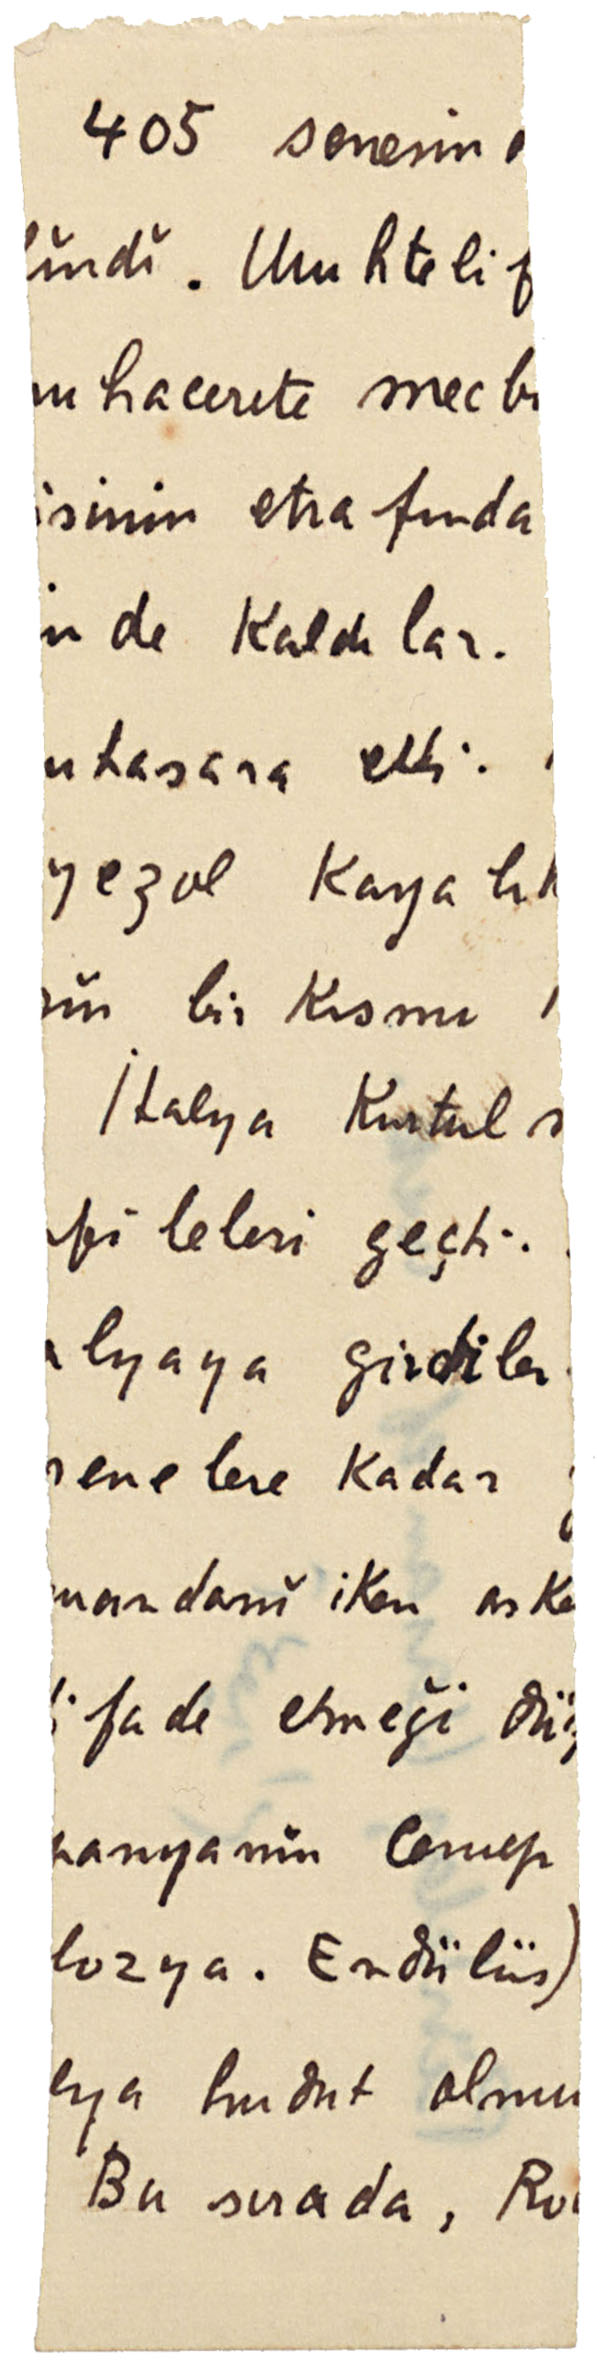 405 senesin
lindi. Muhtelif
muhacerete mecb
isinin etrafında
in de Kaldılar.
uhasara etti.
yezol Kayalık
nin bir Kısmı
İtalya Kurtul
afileleri geçti.
alyaya girdiler
renelere Kadar
mandanı iken aske
ifade etmeği düş
panyanın Cenup
lozya. Endülüs)
eya hudut olmu
Bu sırada, Ro